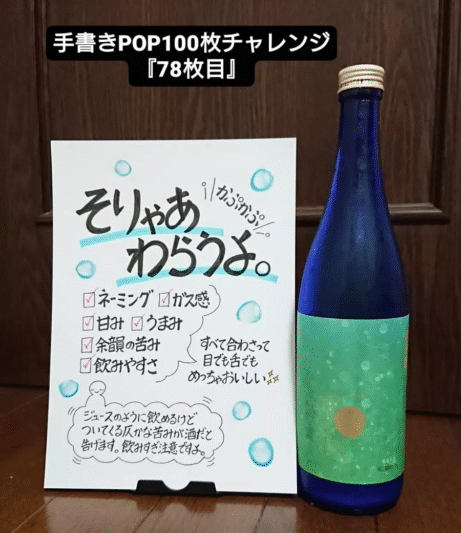 手書きPOP100枚チャレンジ
『78枚目』
かぷかぷ
そりゃあ
わらうよ。
ネーミング ガス感
甘み うまみ
余韻の苦み
飲みやすさ
すべて合わさって
目でも舌でも
めっちゃおいしい
ジュースのように飲めるけど
ついてくる仄かな苦みが酒だと
告げます。飲みすぎ注意ですよ。